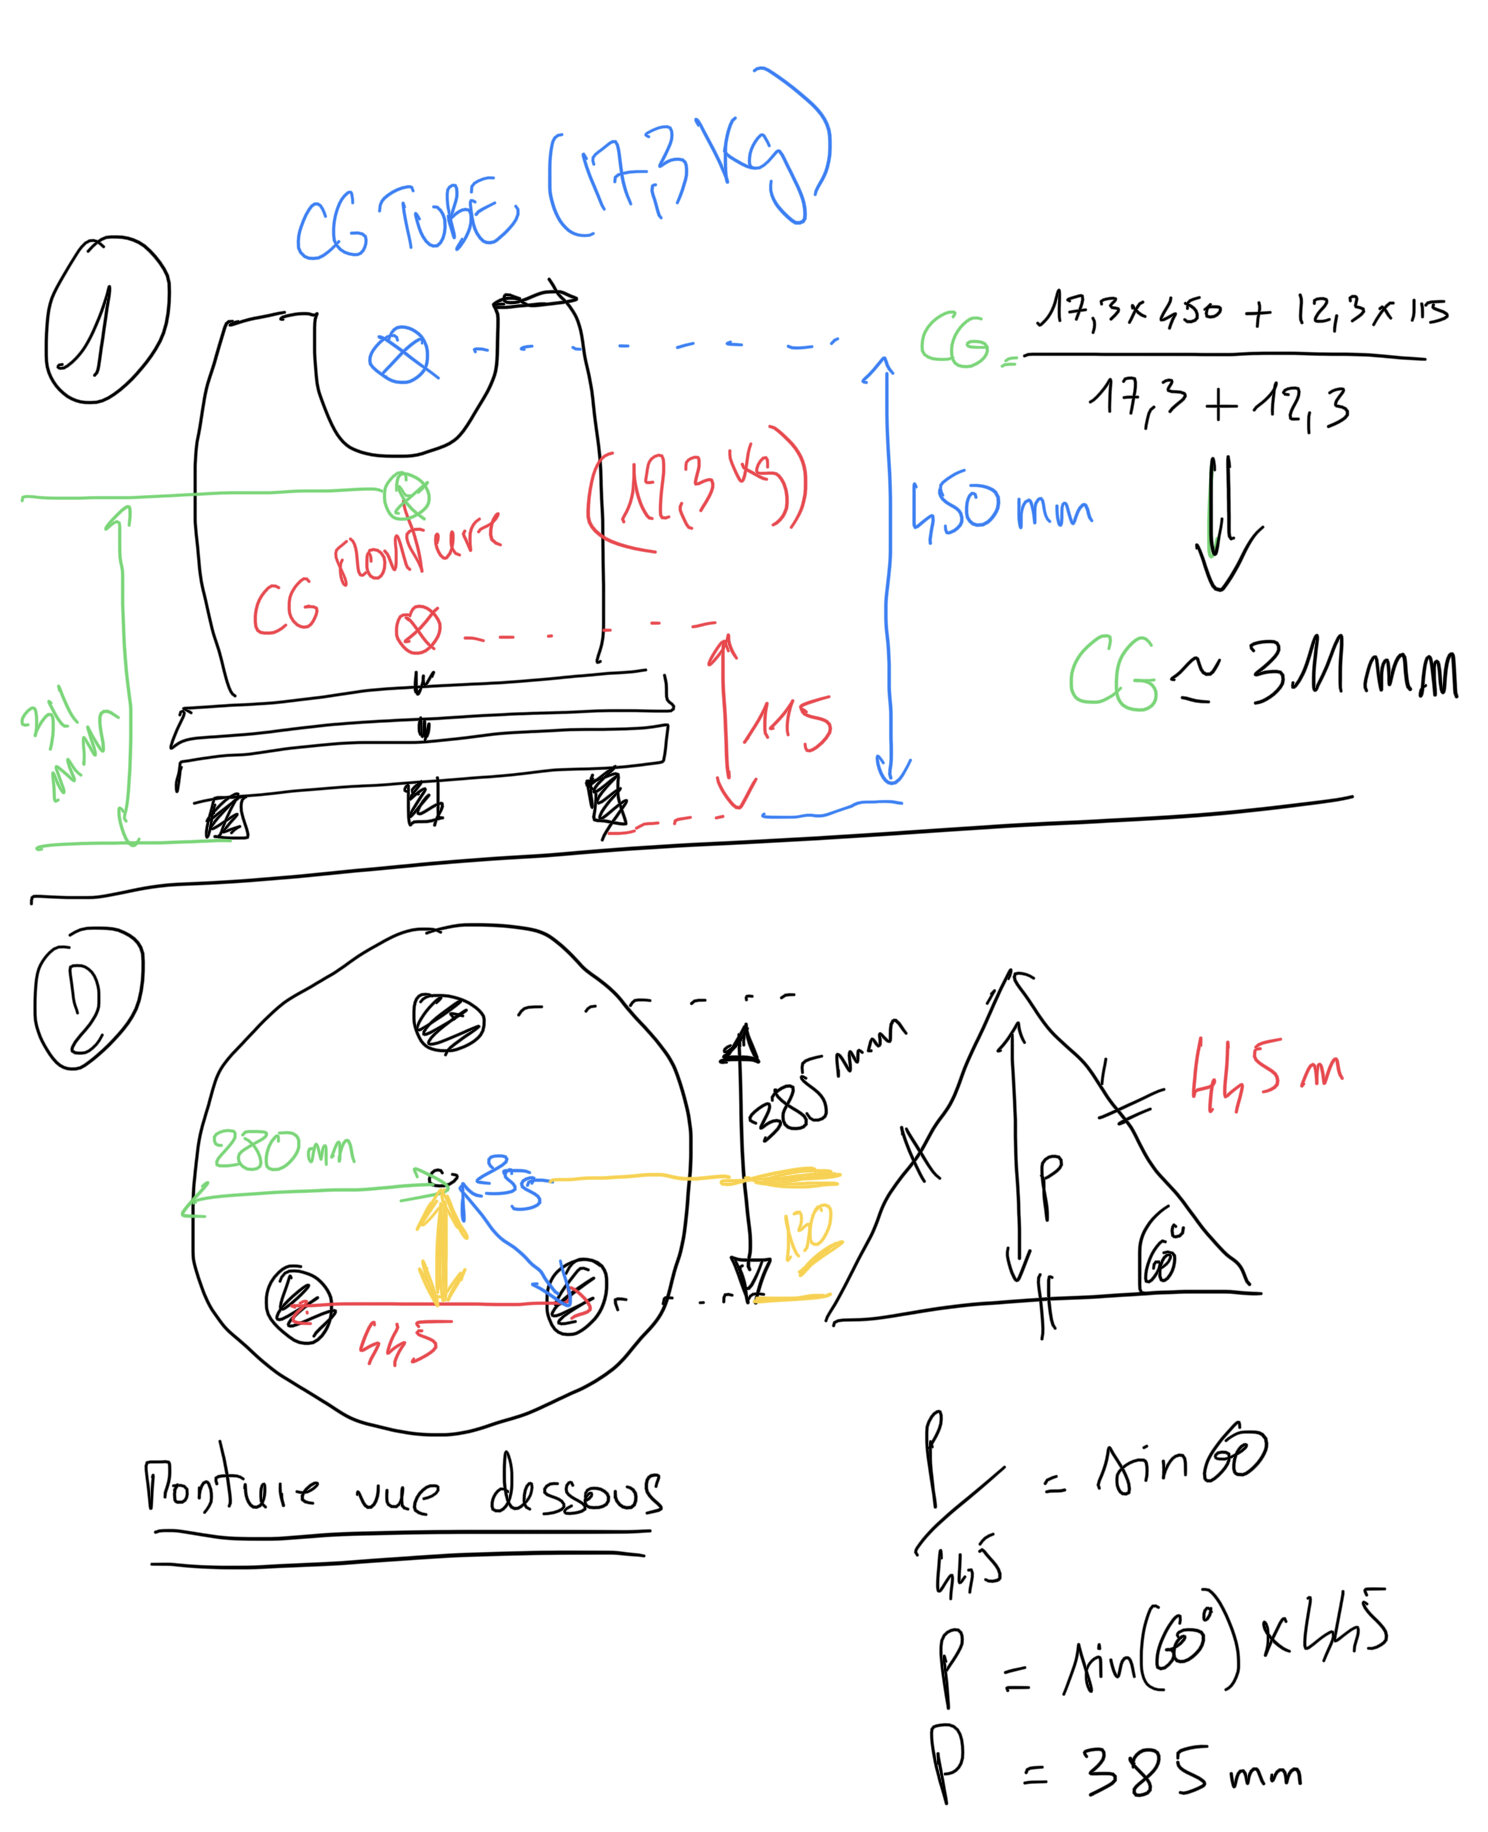 1
CG TUBE (17,3 Kg)
CG = 17,3 x 450 + 12,3 x 115
17,3 + 12,3
(12,3 Kg)
450 mm
CG Monture
CG ≃ 311 mm
311 mm
115
2
385 mm
445 m
280 mm
255
P
130
60°
445
Monture vue dessous
P/445 = sin 60
P = sin(60°) x 445
P = 385 mm